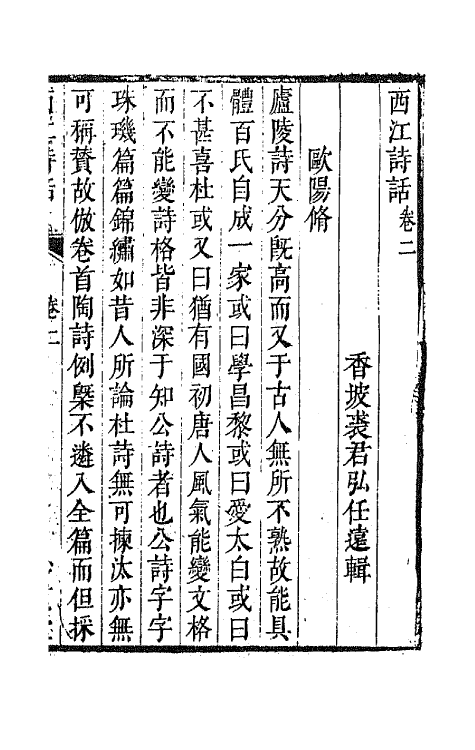 西江詩話 卷二
香坡裘君弘任遠輯
歐陽脩
廬陵詩天分既高而又于古人無所不熟故能具
體百氏自成一家或曰學昌黎或曰愛太白或曰
不甚喜杜或又曰猶有國初唐人風氣能變文格
而不能變詩格皆非深于知公詩者也公詩字字
珠璣篇篇錦繡如昔人所論杜詩無可揀汰亦無
可稱贊故倣卷首陶詩例槩不遴入全篇而但採
西江詩話 卷二